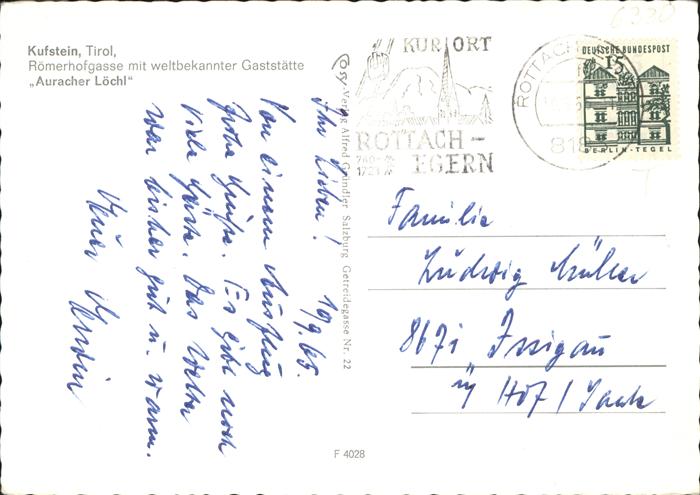 Kufstein, Tirol,
Römerhofgasse mit weltbekannter Gaststätte
„Auracher Löchl"
Cosy-Verlag Alfred Gründler Salzburg Getreidegasse Nr. 22
KURORT
ROTTACH-
EGERN
740-
1723 m
ROTTACH
818
DEUTSCHE BUNDESPOST
15
BERLIN-TEGEL
10/9.65.
Ihr Lieben!
Von einem Ausflug
Grüße. Es gibt noch
viele Gäste. Das Wetter
war bisher gut u. warm.
Familie
Ludwig Müller
8671 Issigau
Hof / Saale
F 4028